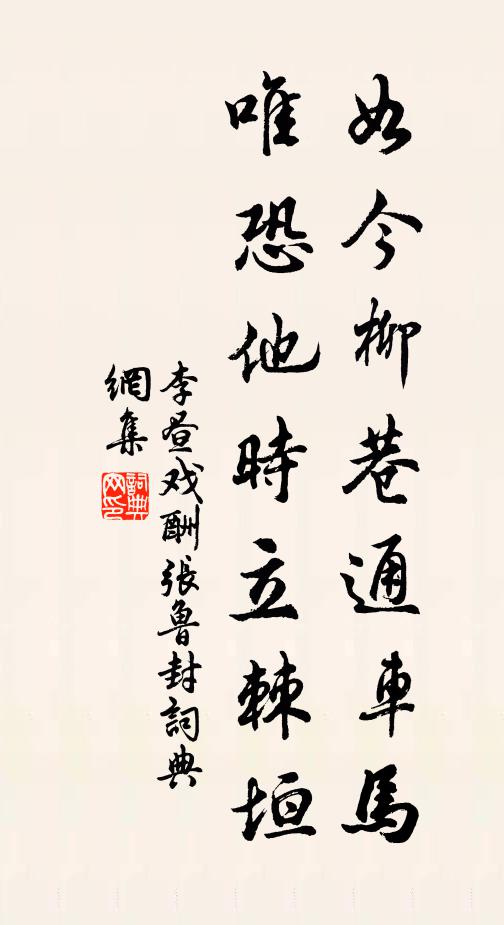 如今柳巷通車馬
唯恐他時立棘垣
李昼戏酬張魯封詞典
網集
詞典
网印